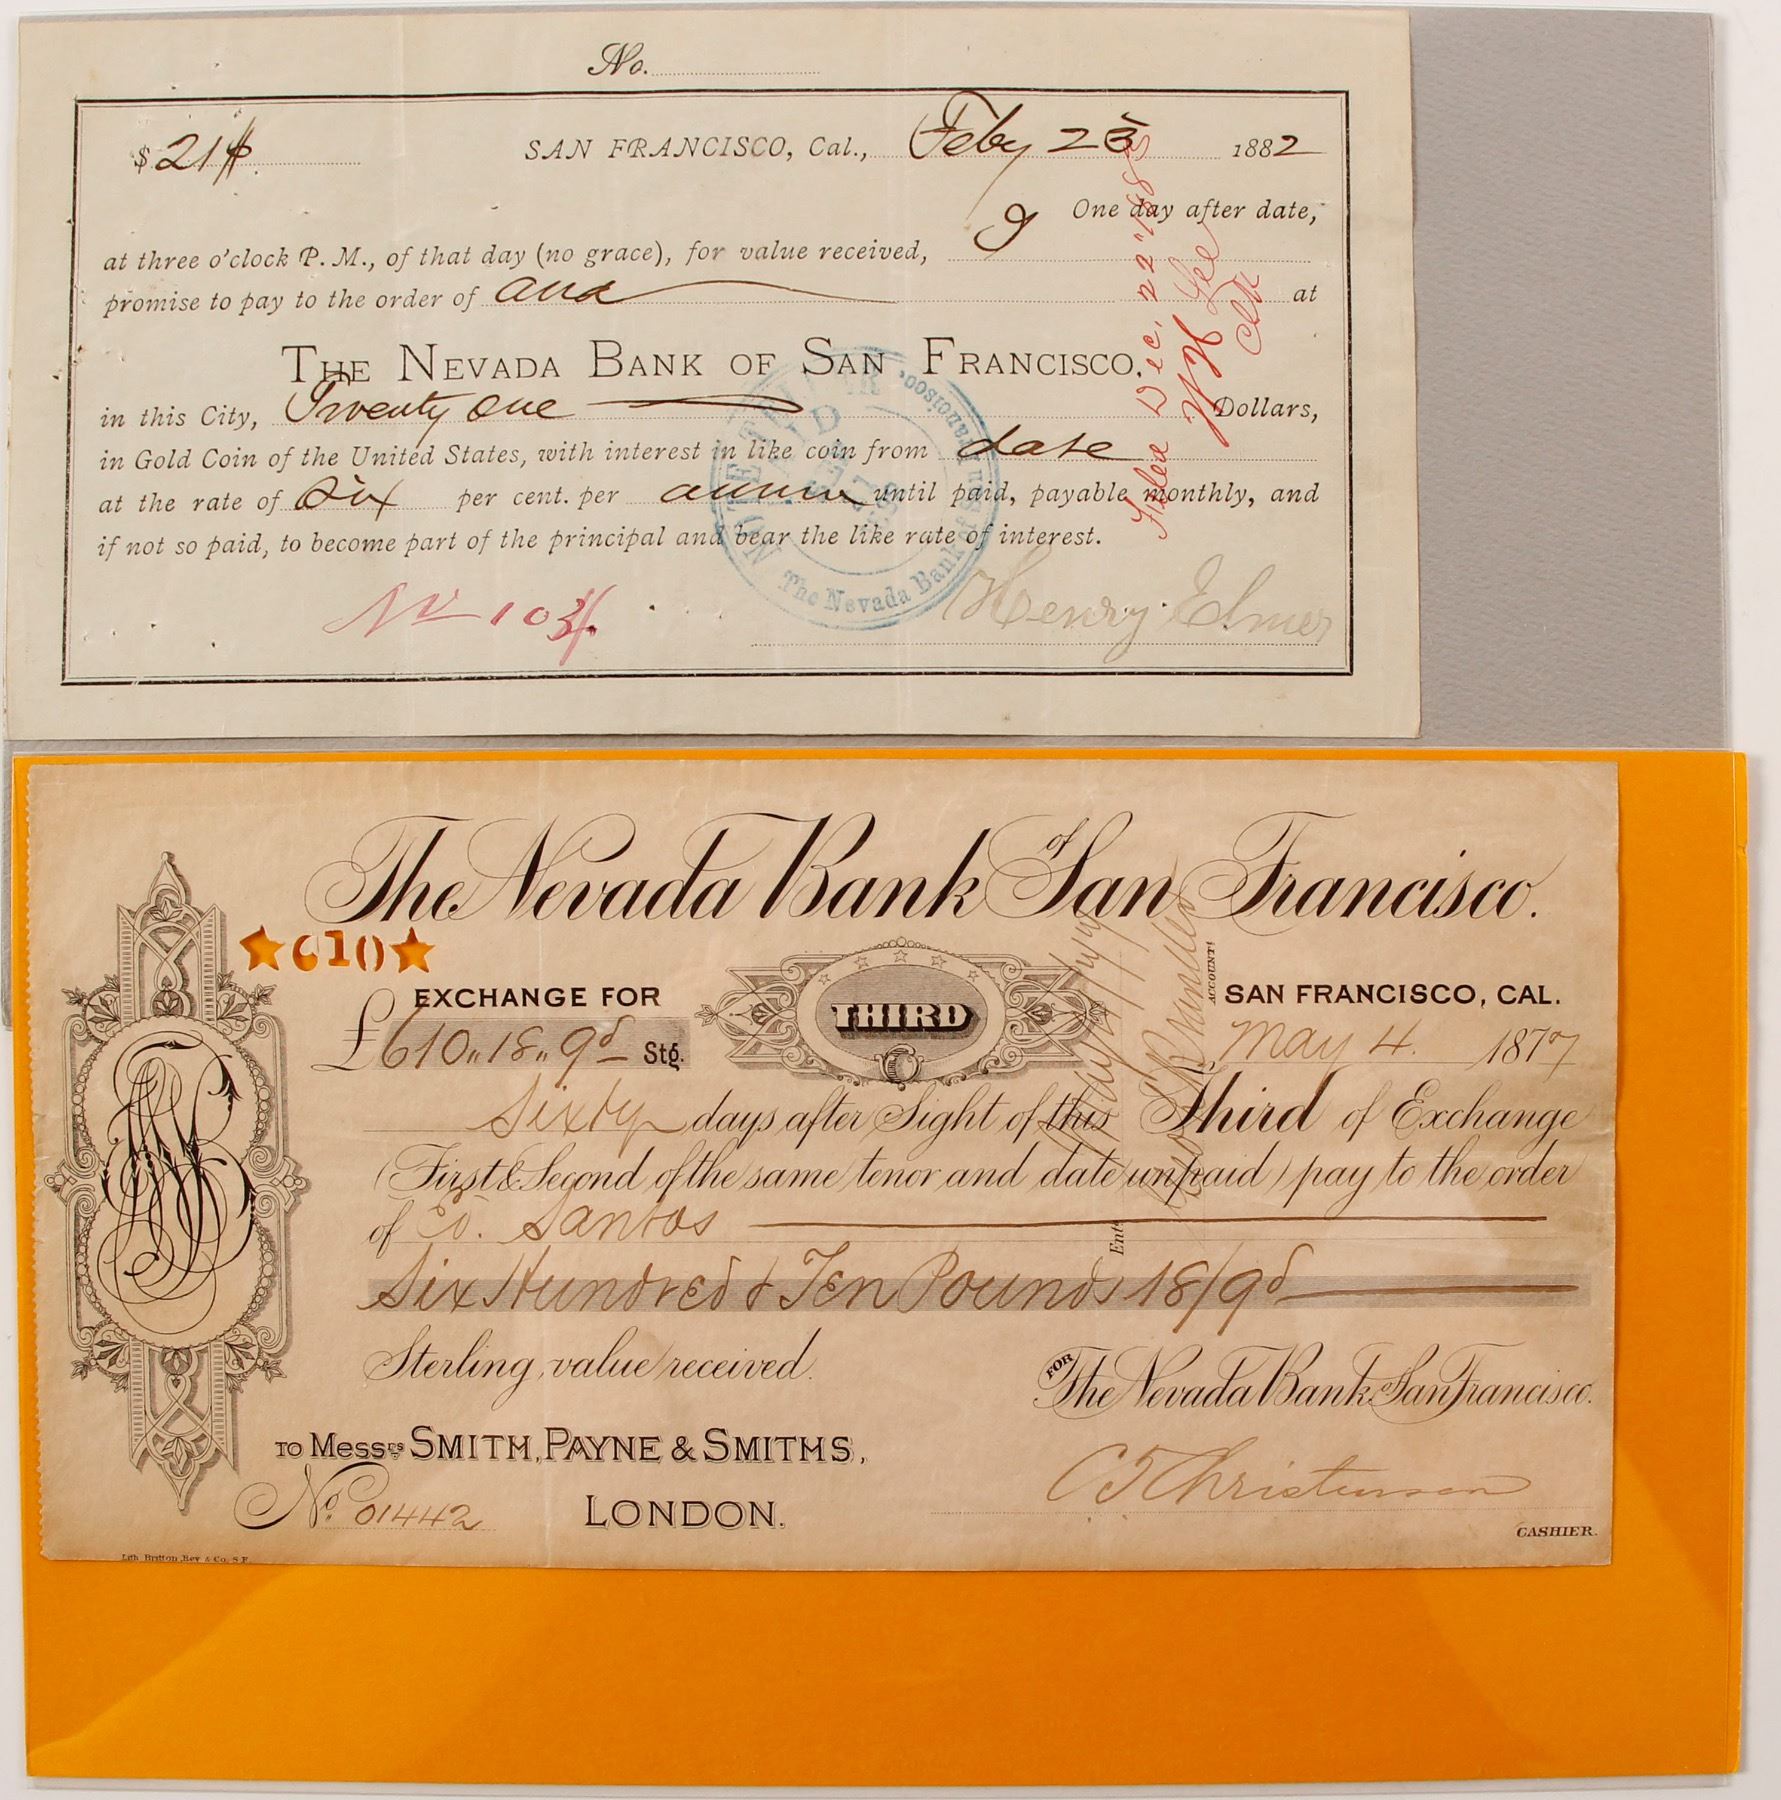 No.
$ 21 SAN FRANCISCO, Cal., Feby 23 1882
I One day after date,
at three o'clock P. M., of that day (no grace), for value received,
promise to pay to the order of at
THE NEVADA BANK OF SAN FRANCISCO,
in this City, Twenty One Dollars,
in Gold Coin of the United States, with interest in like coin from date
at the rate of Six per cent. per annum until paid, payable monthly, and
if not so paid, to become part of the principal and bear the like rate of interest.
The Nevada Bank of San Francisco.
Henry Elmer
Filed Dec. 22
The Nevada Bank of San Francisco.
★610★
EXCHANGE FOR
£610.. 18.. 9d Stg.
THIRD
ACCOUNT!
SAN FRANCISCO, CAL.
May 4. 1877
Sixty days after Sight of this Third of Exchange
(First & Second of the same tenor and date unpaid) pay to the order
of Santos
Entd
Six Hundred & Ten Pounds 18/9d
Sterling, value received.
FOR The Nevada Bank of San Francisco.
TO Messrs SMITH, PAYNE & SMITHS,
No. 01442 LONDON.
C T Christensen
CASHIER.
Lith. Britton, Rey & Co. S.F.